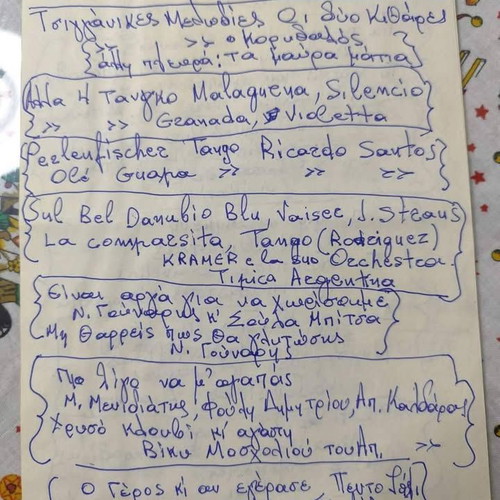 Τσιγγάνικες Μελωδίες Οι δύο Κιθάρες
>> >> ο Κορυδαλός
άλλη πλευρά: τα μαύρα μάτια
Alla 4 Τανγκο Malaguena, Silencio
>> >> Granada, Violetta
Perlenfischer Tango Ricardo Santos
Olé Guapa >> >> >>
Sul Bel Danubio Blu, Vaisee, J. Straus
La comparsita, Tango (Rodriguez)
KRAMER e la suo Orchestra
Tipica Argentina
Είναι αργά για να χωρίσουμε
Ν. Γούναρης κ' Σούλα Μπίτσα
Μη θαρρείς πως θα γλυτώσης
Ν. Γούναρης
Πιο λίγο να μ' αγαπάς
Μ. Μενιδιάτης, Φούλη Δημητρίου, Απ. Καλδάρας
Χρυσό κλουβί κι αγάπη
Βίκυ Μοσχολιού του Απ. >>
Ο Γέρος κι αν επέρασε,